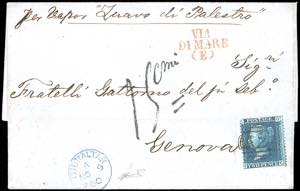 per Vapor "Zuavo di Palestro"
VIA
DI MARE
(E)
Sig.ri
Fratelli Gattorno del fu Seb.o
Genova
GIBRALTAR
POSTAGE
TWO PENCE